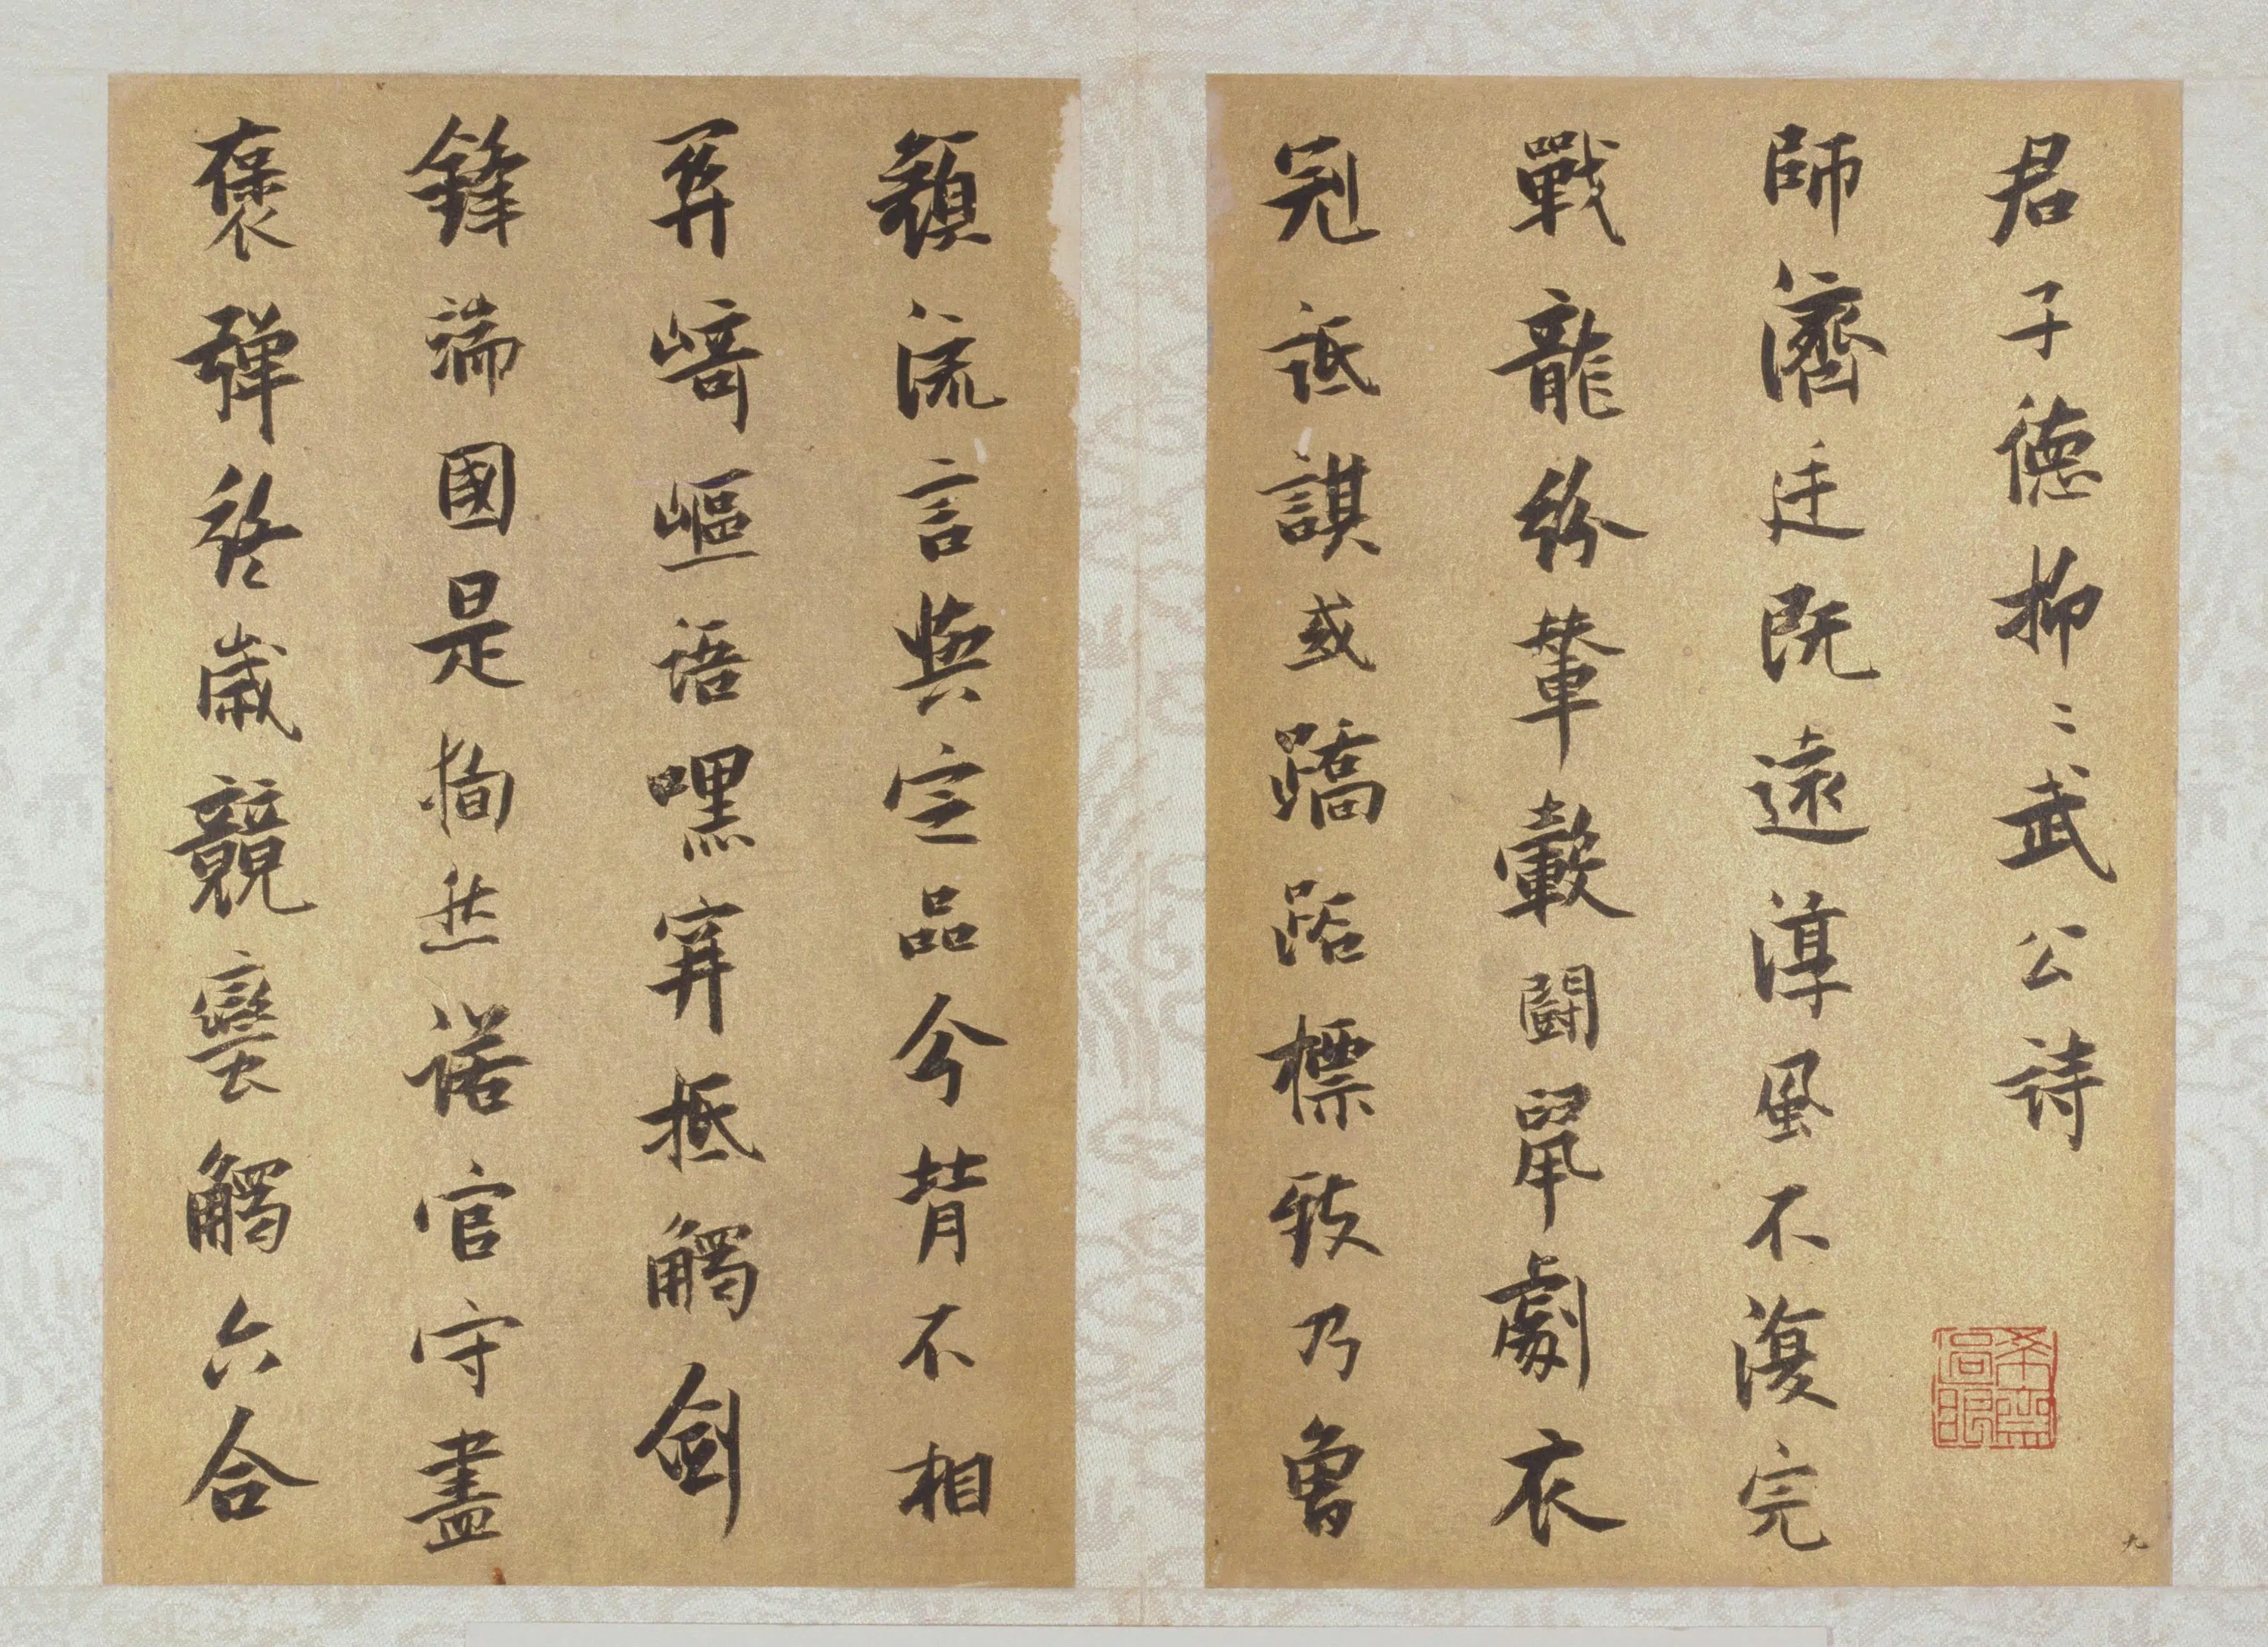 君子德抑〻武公詩
師濟廷既遠淳風不復完
戰龍紛輦轂鬪鼠劇衣
冠詆諆或蹻跖標致乃魯
顏流言與定品今昔不相
關崎嶇語嘿穽抵觸劍
鋒端國是狥然諾官守盡
褒彈終歲競蠻觸六合
九